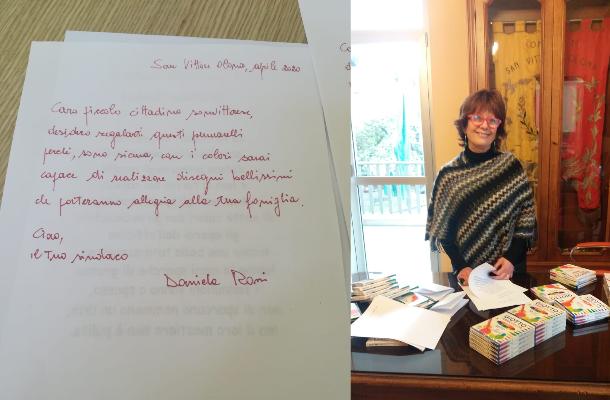 San Vittore Olona, aprile 2020
Caro piccolo cittadino sanvittorese,
desidero regalarti questi pennarelli
perché, sono sicura, con i colori sarai
capace di realizzare disegni bellissimi
che porteranno allegria alla tua famiglia.
Ciao,
il tuo sindaco
Daniela Rossi